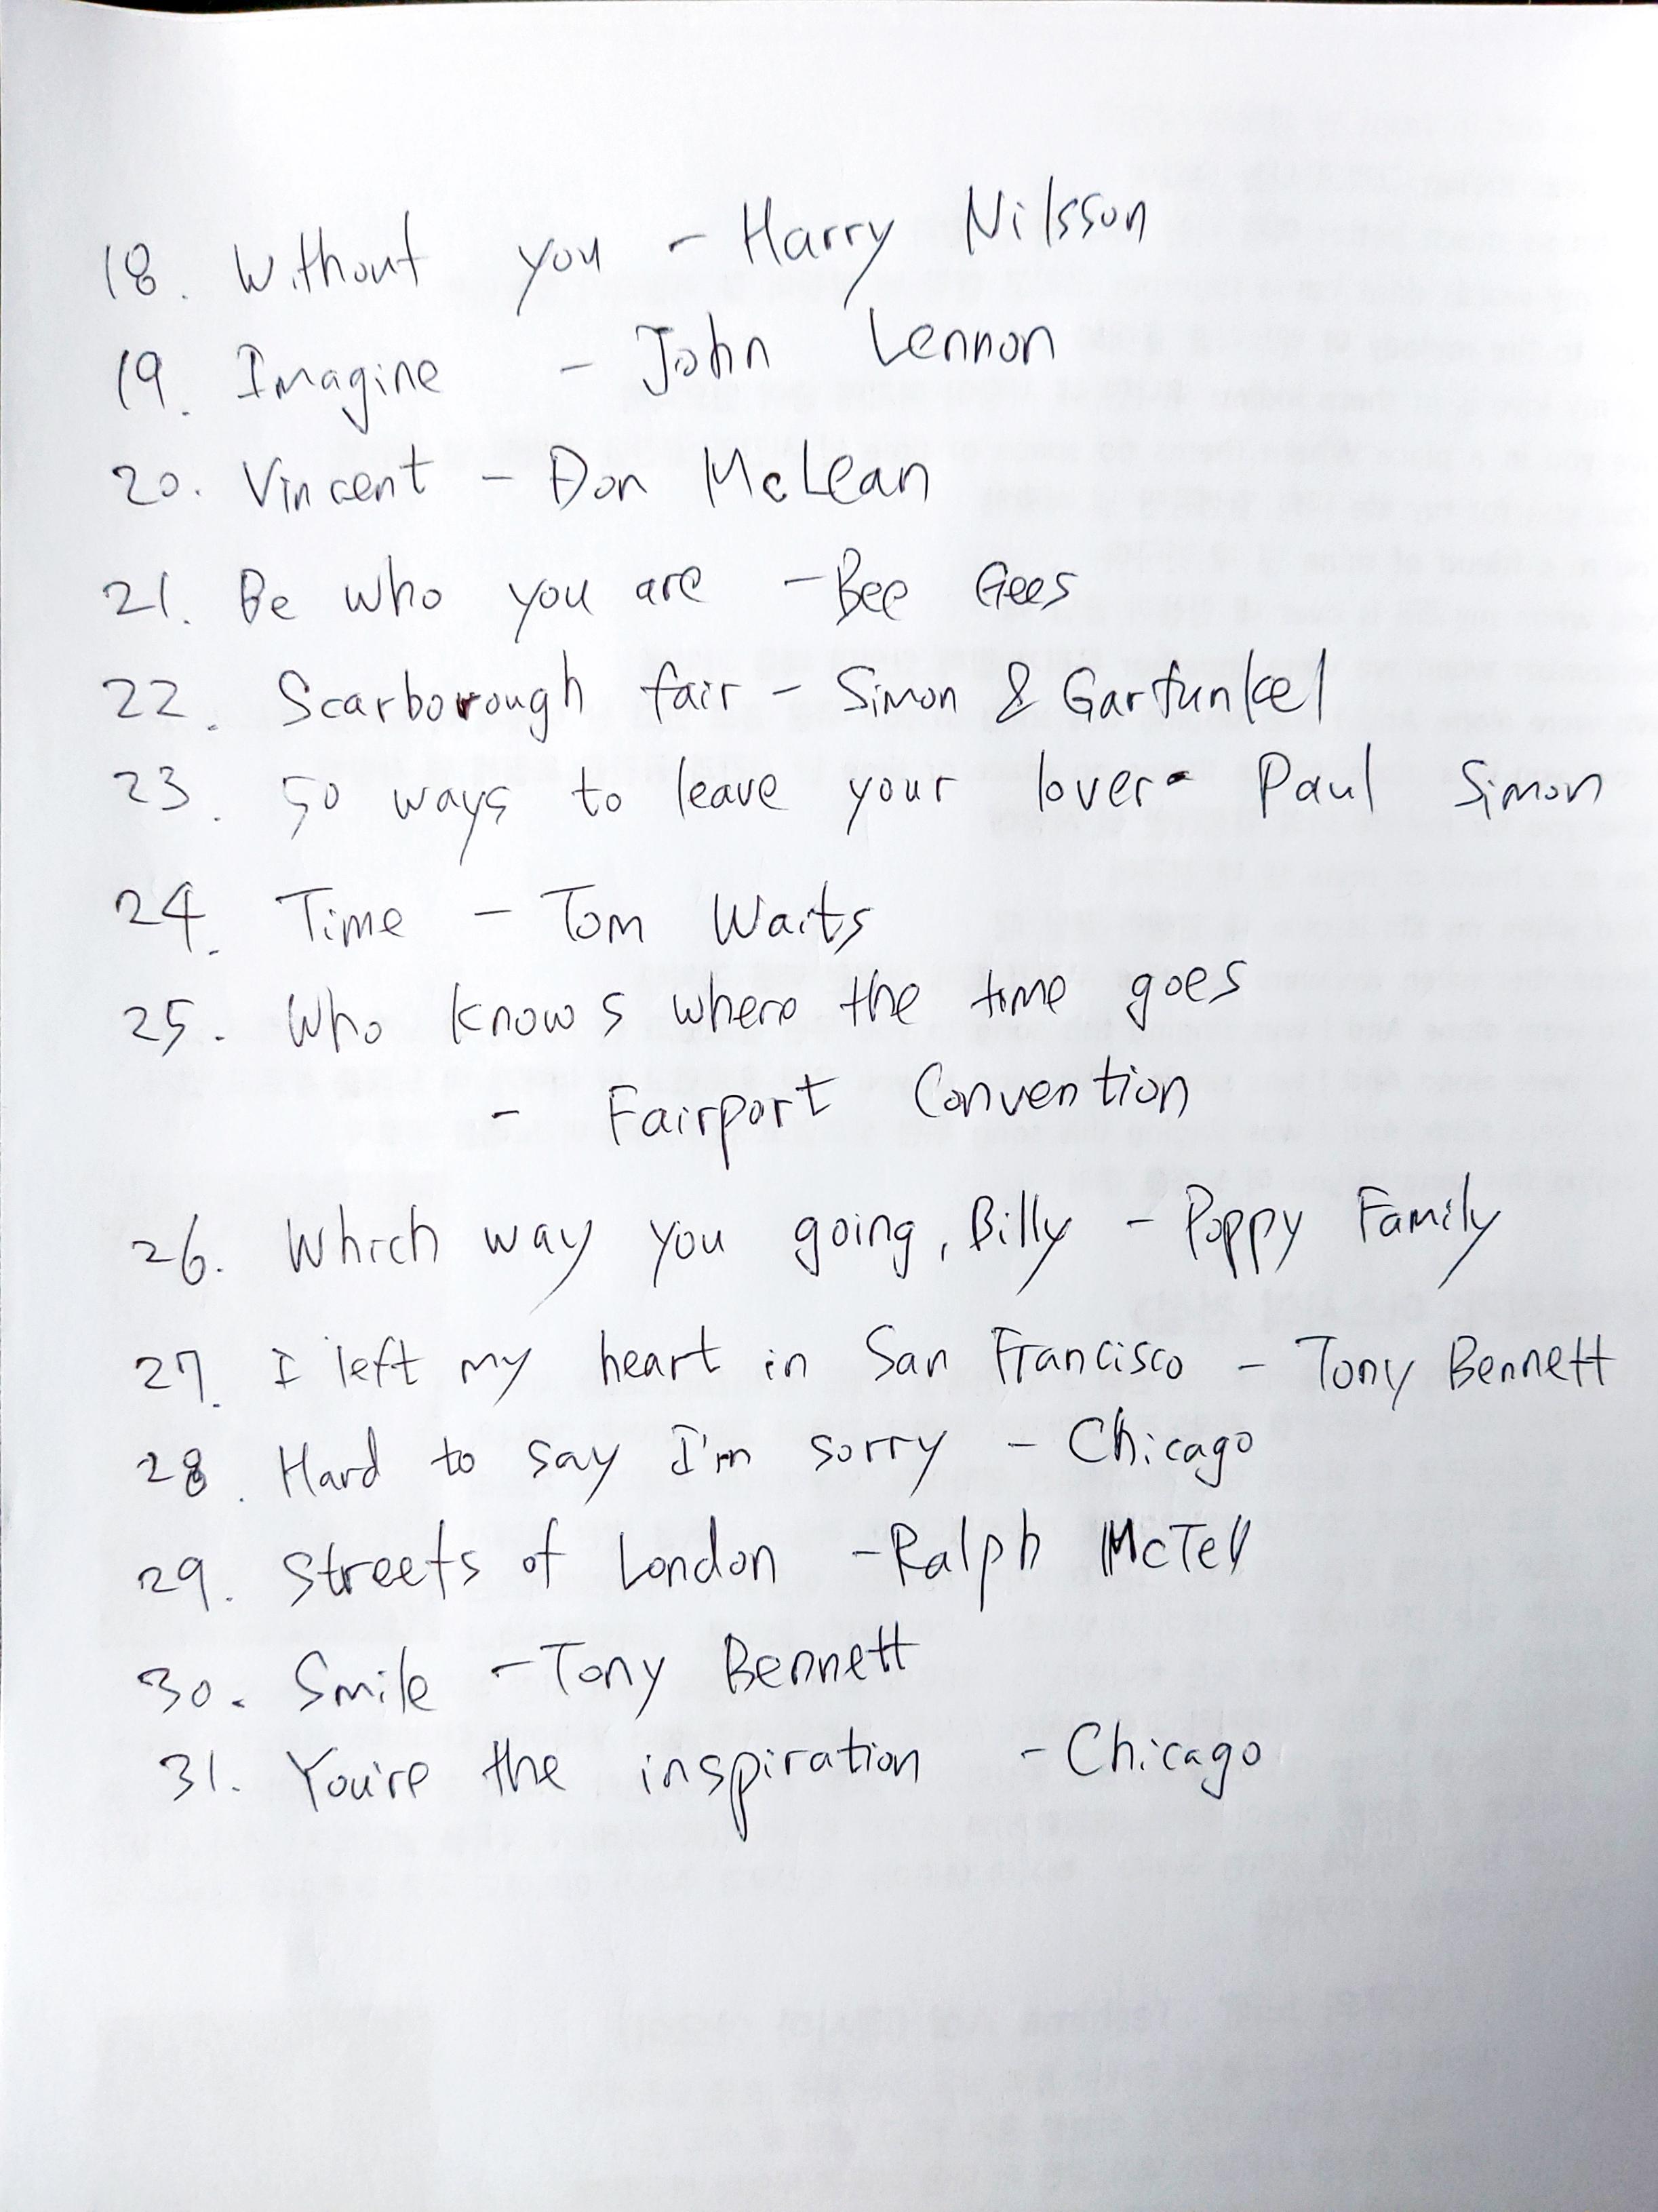 18. Without you - Harry Nilsson
19. Imagine - John Lennon
20. Vincent - Don McLean
21. Be who you are - Bee Gees
22. Scarborough fair - Simon & Garfunkel
23. 50 ways to leave your lover - Paul Simon
24. Time - Tom Waits
25. Who knows where the time goes
- Fairport Convention
26. Which way you going, Billy - Poppy Family
27. I left my heart in San Francisco - Tony Bennett
28. Hard to say I'm sorry - Chicago
29. Streets of London - Ralph McTell
30. Smile - Tony Bennett
31. You're the inspiration - Chicago